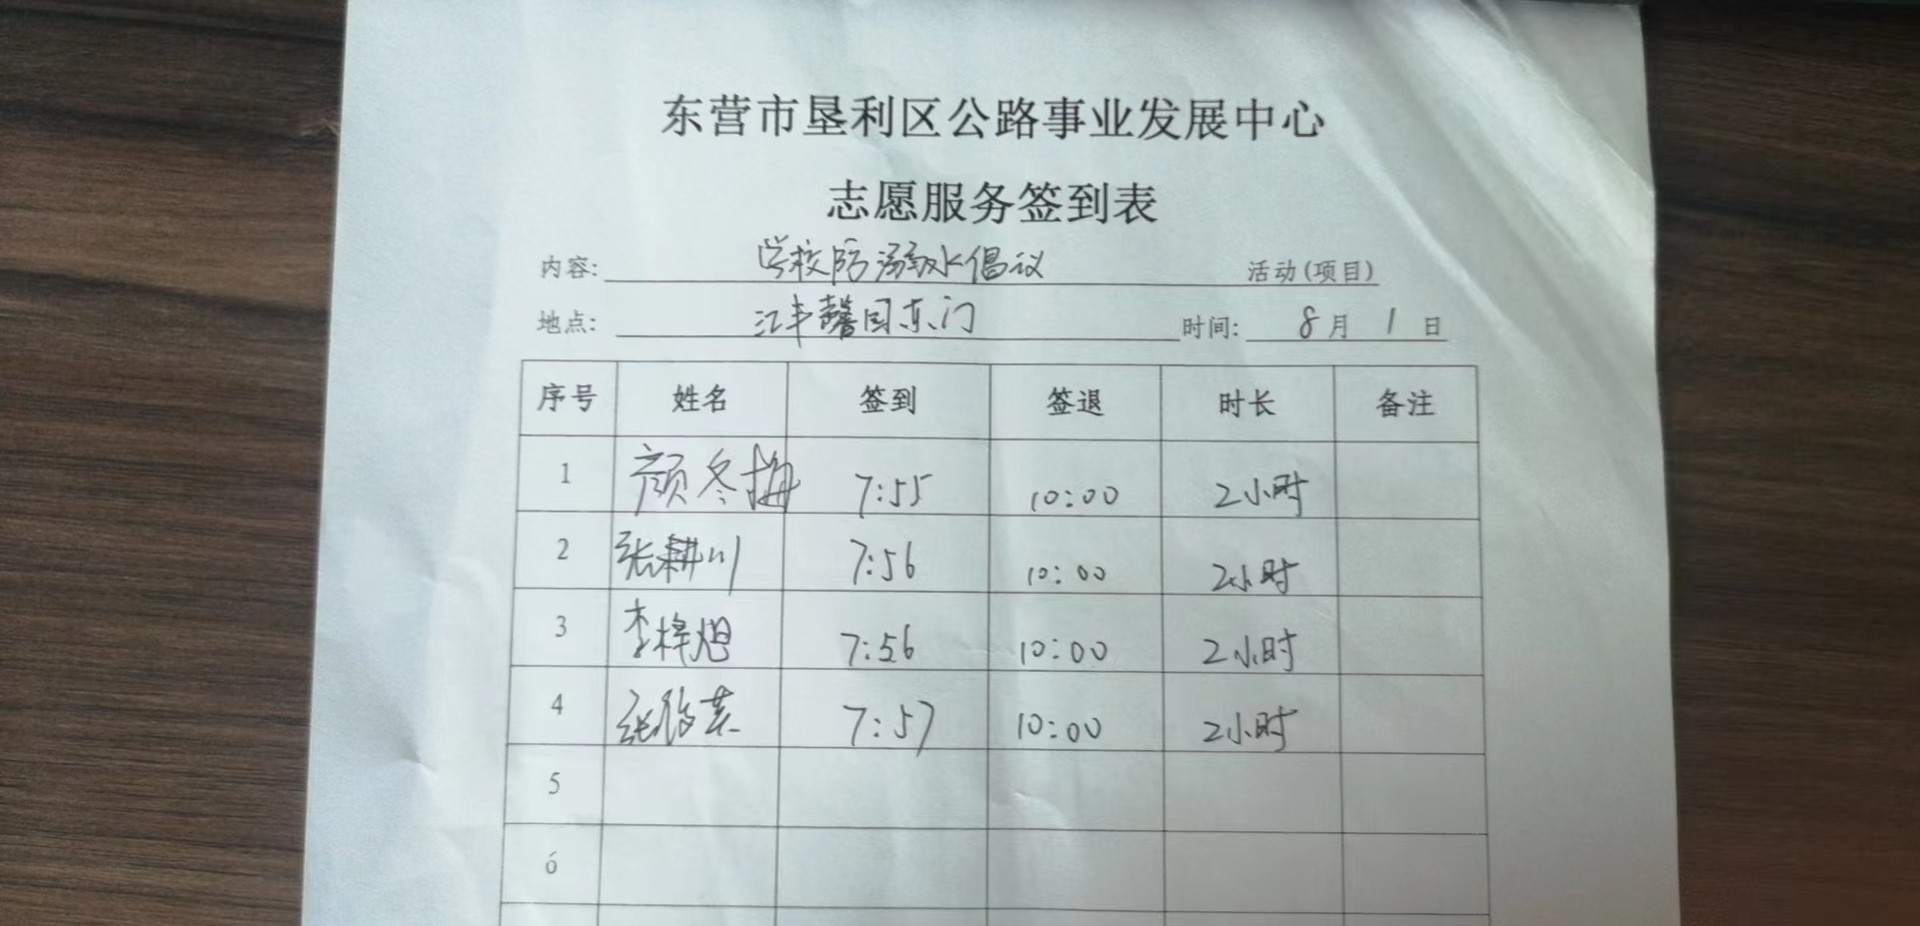 东营市垦利区公路事业发展中心
志愿服务签到表
内容: 学校防溺水倡议 活动(项目)
地点: 江丰馨园东门 时间: 8月1日
序号 姓名 签到 签退 时长 备注
1 颜冬梅 7:55 10:00 2小时
2 张耕川 7:56 10:00 2小时
3 李梓旭 7:56 10:00 2小时
4 7:57 10:00 2小时
5
6